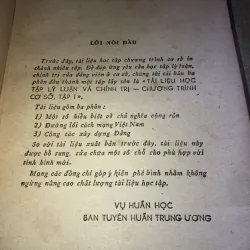 LỜI NÓI ĐẦU
Trước đây, tài liệu học tập chương trình cơ sở in
thành nhiều tập. Để đáp ứng yêu cầu học tập lý luận,
chính trị của đảng viên ở cơ sở, chúng tôi tái bản ba
phần đầu thành một tập lấy tên là «TÀI LIỆU HỌC
TẬP LÝ LUẬN VÀ CHÍNH TRỊ — CHƯƠNG TRÌNH
CƠ SỞ, TẬP I».
Tài liệu gồm ba phần:
1) Một số hiểu biết về chủ nghĩa cộng sản
2) Đường lối cách mạng Việt Nam
3) Công tác xây dựng Đảng
So với tài liệu xuất bản trước đây, tài liệu này
được bổ sung, sửa chữa một số chỗ cho phù hợp với
tình hình mới.
Mong các đồng chí góp ý kiến phê bình nhằm không
ngừng nâng cao chất lượng tài liệu học tập.
VỤ HUẤN HỌC
BAN TUYÊN HUẤN TRUNG ƯƠNG